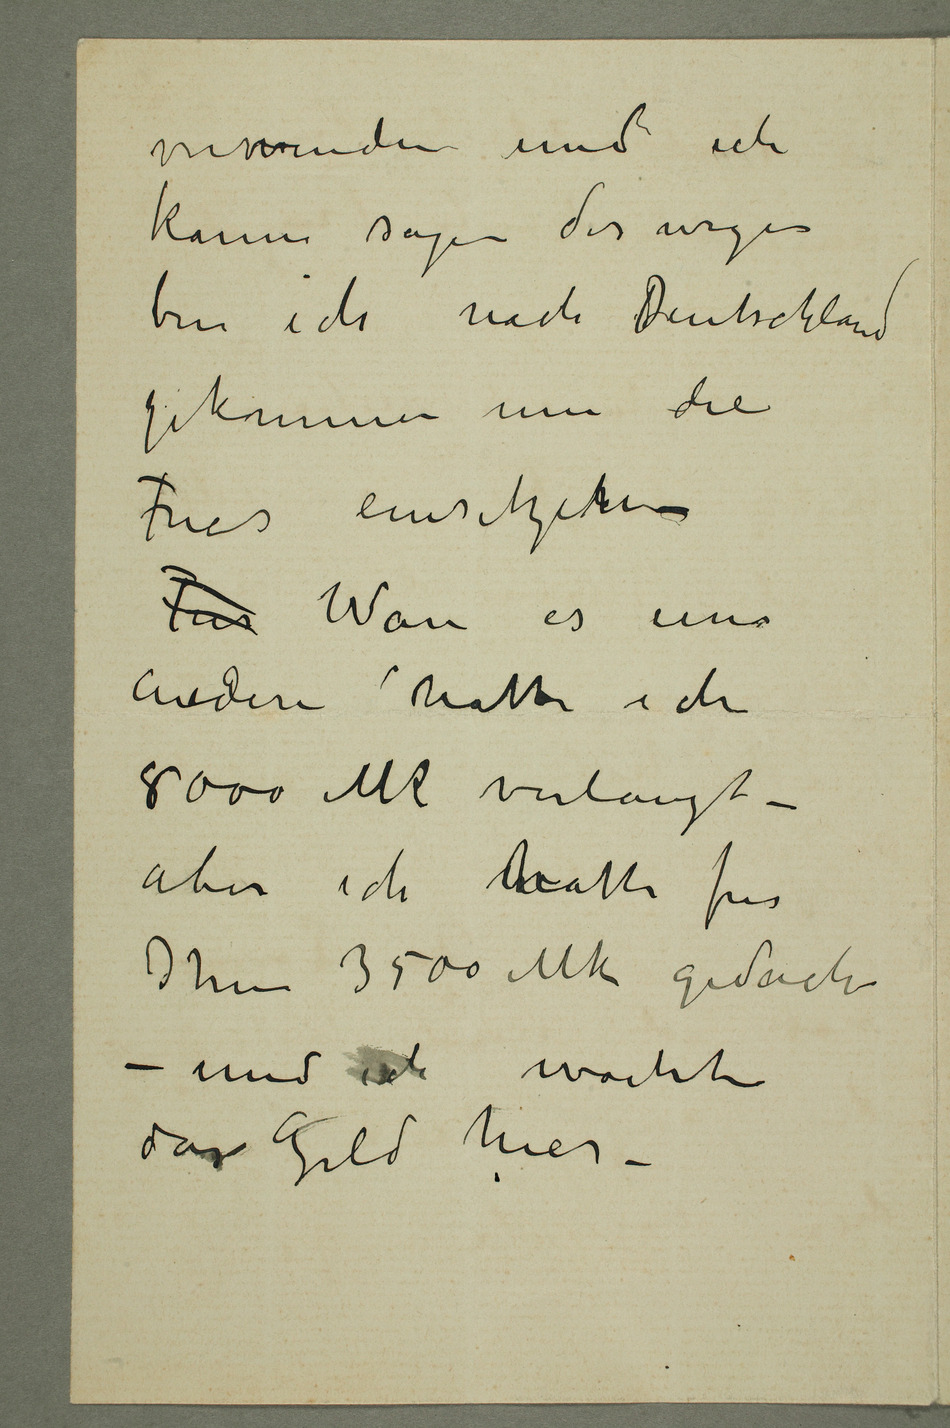 verwenden und ich
kann sagen deswegen
bin ich nach Deutschland
gekommen um die
Fries einsetzen
Fries Wan es eine
andere hatte ich
8000 Mk verlangt –
aber ich hatte fur
Ihnen 3500 Mk gedach
– und ich wachte
das Geld hier –